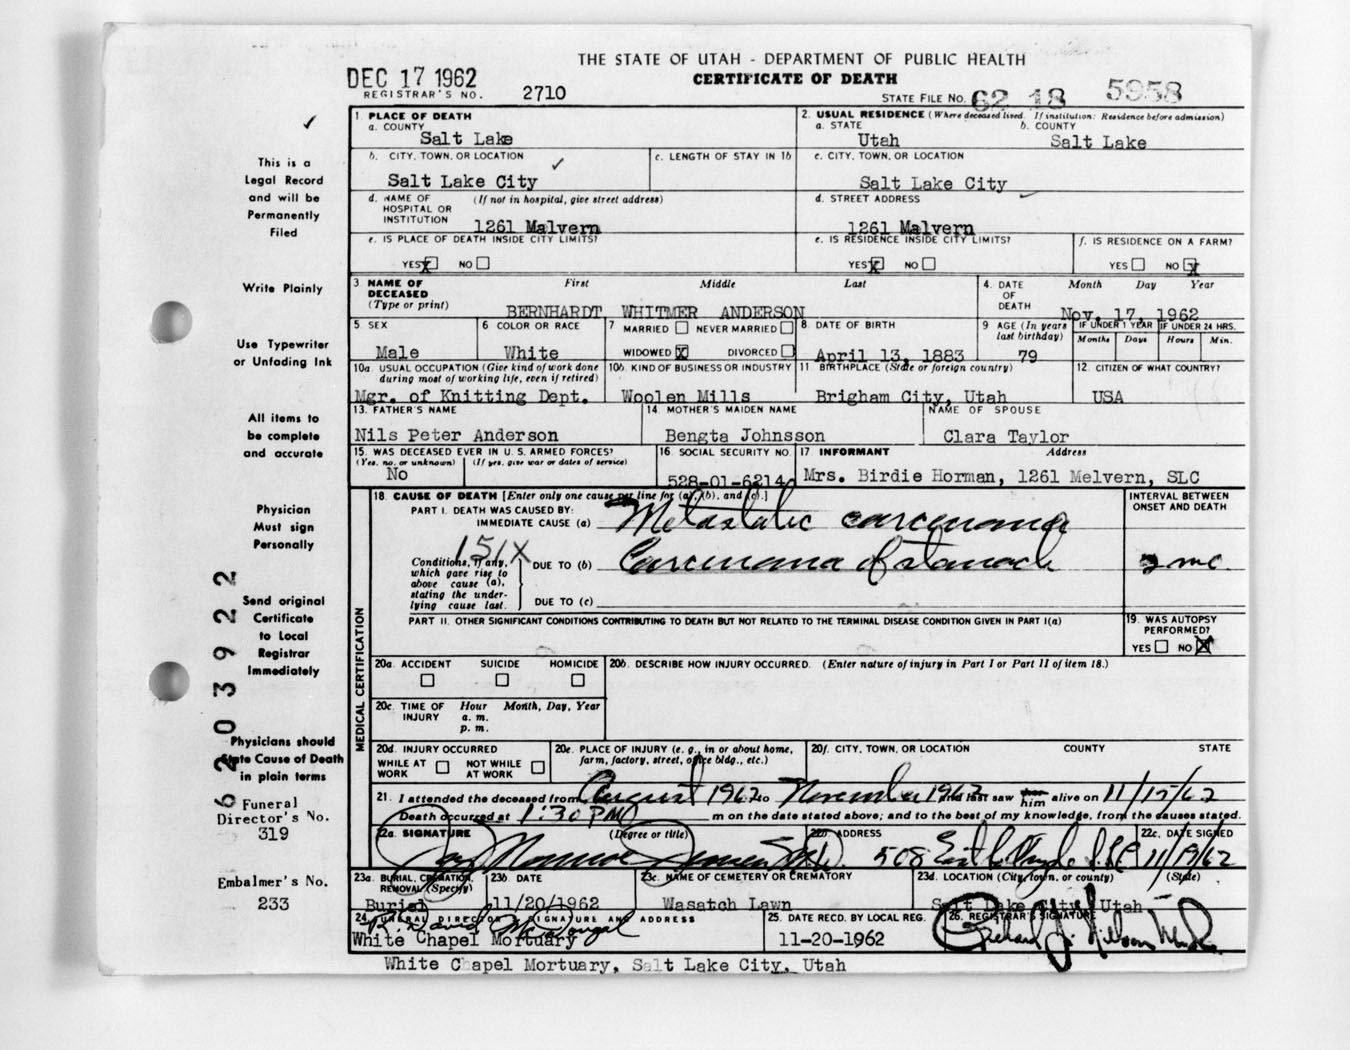 THE STATE OF UTAH - DEPARTMENT OF PUBLIC HEALTH
CERTIFICATE OF DEATH
DEC 17 1962
REGISTRAR'S NO. 2710
STATE FILE NO. 62 18 5958
This is a
Legal Record
and will be
Permanently
Filed
Write Plainly
Use Typewriter
or Unfading Ink
All items to
be complete
and accurate
Physician
Must sign
Personally
Send original
Certificate
to Local
Registrar
Immediately
Physicians should
State Cause of Death
in plain terms
62 203922
Funeral
Director's No.
319
Embalmer's No.
233
1. PLACE OF DEATH
a. COUNTY
Salt Lake
2. USUAL RESIDENCE (Where deceased lived. If institution: Residence before admission)
a. STATE b. COUNTY
Utah Salt Lake
b. CITY, TOWN, OR LOCATION
Salt Lake City
c. LENGTH OF STAY IN 1b
c. CITY, TOWN, OR LOCATION
Salt Lake City
d. NAME OF HOSPITAL OR INSTITUTION (If not in hospital, give street address)
1261 Malvern
d. STREET ADDRESS
1261 Malvern
e. IS PLACE OF DEATH INSIDE CITY LIMITS?
YES X NO
e. IS RESIDENCE INSIDE CITY LIMITS?
YES X NO
f. IS RESIDENCE ON A FARM?
YES NO X
3. NAME OF DECEASED (Type or print) First Middle Last
BERNHARDT WHITMER ANDERSON
4. DATE OF DEATH Month Day Year
Nov. 17, 1962
5. SEX
Male
6 COLOR OR RACE
White
7 MARRIED NEVER MARRIED
WIDOWED X DIVORCED
8. DATE OF BIRTH
April 13, 1883
9 AGE (In years last birthday)
79
IF UNDER 1 YEAR Months Days
IF UNDER 24 HRS. Hours Min.
10a. USUAL OCCUPATION (Give kind of work done during most of working life, even if retired)
Mgr. of Knitting Dept.
10b. KIND OF BUSINESS OR INDUSTRY
Woolen Mills
11 BIRTHPLACE (State or foreign country)
Brigham City, Utah
12. CITIZEN OF WHAT COUNTRY?
USA
13. FATHER'S NAME
Nils Peter Anderson
14. MOTHER'S MAIDEN NAME
Bengta Johnsson
NAME OF SPOUSE
Clara Taylor
15. WAS DECEASED EVER IN U. S. ARMED FORCES?
(Yes, no, or unknown) (If yes, give war or dates of service)
No
16. SOCIAL SECURITY NO.
528-01-6214
17 INFORMANT Address
Mrs. Birdie Horman, 1261 Melvern, SLC
18. CAUSE OF DEATH [Enter only one cause per line for (a), (b), and (c).]
INTERVAL BETWEEN ONSET AND DEATH
PART I. DEATH WAS CAUSED BY:
IMMEDIATE CAUSE (a) Metastatic carcinoma
151X
Conditions, if any, which gave rise to above cause (a), stating the underlying cause last.
DUE TO (b) Carcinoma of stomach 2 mo
DUE TO (c)
PART II. OTHER SIGNIFICANT CONDITIONS CONTRIBUTING TO DEATH BUT NOT RELATED TO THE TERMINAL DISEASE CONDITION GIVEN IN PART I(a)
19. WAS AUTOPSY PERFORMED?
YES NO X
MEDICAL CERTIFICATION
20a. ACCIDENT SUICIDE HOMICIDE
20b. DESCRIBE HOW INJURY OCCURRED. (Enter nature of injury in Part I or Part II of item 18.)
20c. TIME OF INJURY Hour a. m. p. m. Month, Day, Year
20d. INJURY OCCURRED
WHILE AT WORK NOT WHILE AT WORK
20e. PLACE OF INJURY (e. g., in or about home, farm, factory, street, office bldg., etc.)
20f. CITY, TOWN, OR LOCATION COUNTY STATE
21. I attended the deceased from August 1962 to November 1962 and last saw him alive on 11/15/62
Death occurred at 1:30 PM m on the date stated above; and to the best of my knowledge, from the causes stated.
22a. SIGNATURE (Degree or title)
Jensen M.D.
22b. ADDRESS
508 East So. Temple S.L.C.
22c. DATE SIGNED
11/19/62
23a. BURIAL, CREMATION, REMOVAL (Specify)
Burial
23b. DATE
11/20/1962
23c. NAME OF CEMETERY OR CREMATORY
Wasatch Lawn
23d. LOCATION (City, town, or county) (State)
Salt Lake City Utah
24. FUNERAL DIRECTOR'S SIGNATURE AND ADDRESS
R. David McDougal
White Chapel Mortuary
25. DATE RECD. BY LOCAL REG.
11-20-1962
26. REGISTRAR'S SIGNATURE
Richard J. Nelson
White Chapel Mortuary, Salt Lake City, Utah